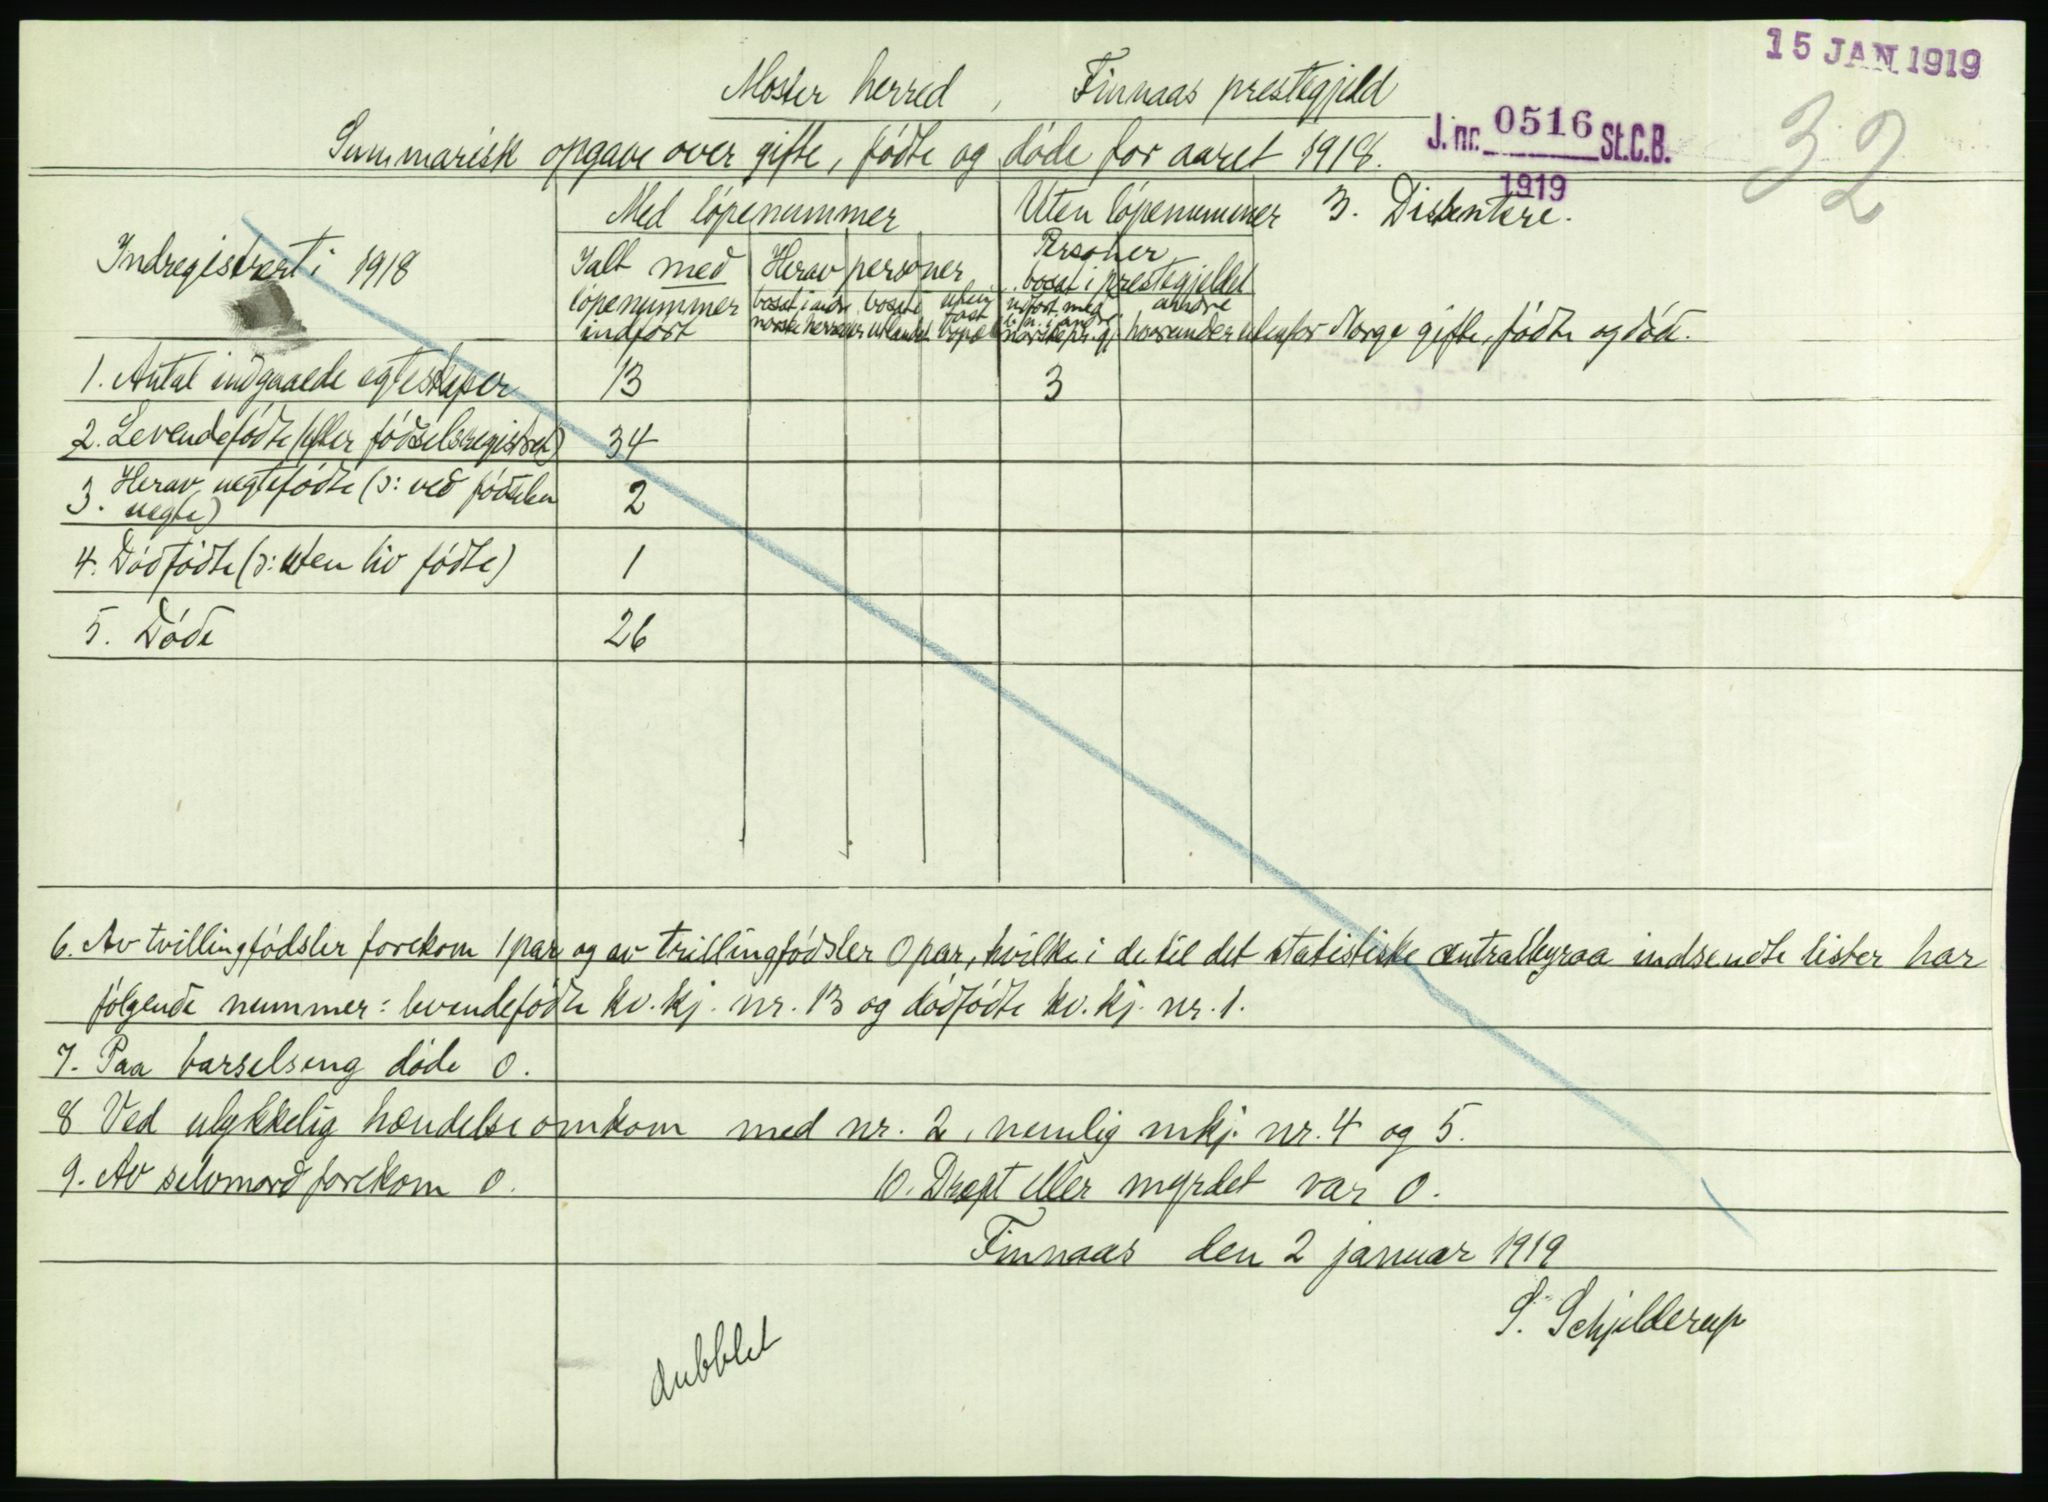 15 JAN 1919
Moster herred, Finnaas prestegjeld
32
Summarisk opgave over gifte, fødte og døde for aaret 1918.
J. nr. 0516 St.C.B.
1919
Med løpenummer
Uten løpenummer
3. Disentere.
Indregistrert i 1918
Ialt med løpenummer indført
Herav personer
bosat i andr. norske herreder
bosat i utlandet
uten fast bopæl
Personer bosat i prestegjeldet
indført med l. nr. i andre norske pr.gj.
andre
hvorunder utenfor Norge gifte, fødte og døde.
1. Antal indgaaede egteskaper 13 3
2. Levendefødte (efter fødselsregistret) 34
3. Herav uegtefødte (ɔ: ved fødselen uegte) 2
4. Dødfødte (ɔ: uten liv fødte) 1
5. Døde 26
6. Av tvillingfødsler forekom 1 par og av trillingfødsler 0 par, hvilke i de til det statistiske centralbyraa indsendte lister har
følgende nummer: levendefødte kv. kj. nr. 13 og dødfødte kv. kj. nr. 1.
7. Paa barselseng døde 0.
8 Ved ulykkelig hændelse omkom med nr. 2, nemlig mkj. nr. 4 og 5.
9. Av selvmord forekom 0. 10. Dræpt eller myrdet var 0.
Finnaas den 2 januar 1919
S. Schjelderup
dubblet